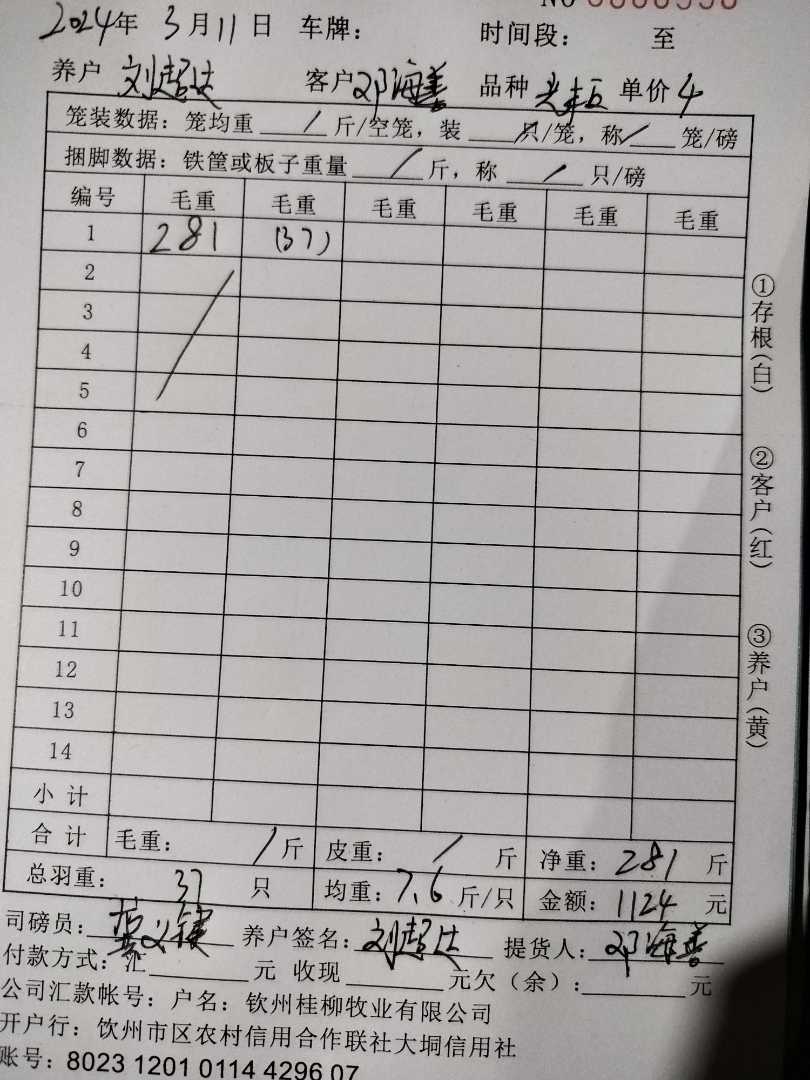 2024年 3月11日 车牌： 时间段： 至
养户 刘超达 客户 邓海善 品种 单价 4
笼装数据：笼均重 / 斤/空笼，装 / 只/笼，称 / 笼/磅
捆脚数据：铁筐或板子重量 / 斤，称 / 只/磅
编号 毛重 毛重 毛重 毛重 毛重 毛重
1 281 (37)
2
3
4
5
6
7
8
9
10
11
12
13
14
小计
合计 毛重： / 斤 皮重： / 斤 净重：281 斤
总羽重： 37 只 均重：7.6 斤/只 金额：1124 元
司磅员： 养户签名：刘超达 提货人：邓海善
付款方式：汇 元 收现 元欠（余）： 元
公司汇款帐号：户名：钦州桂柳牧业有限公司
开户行：钦州市区农村信用合作联社大垌信用社
账号：8023 1201 0114 4296 07
①存根(白)
②客户(红)
③养户(黄)